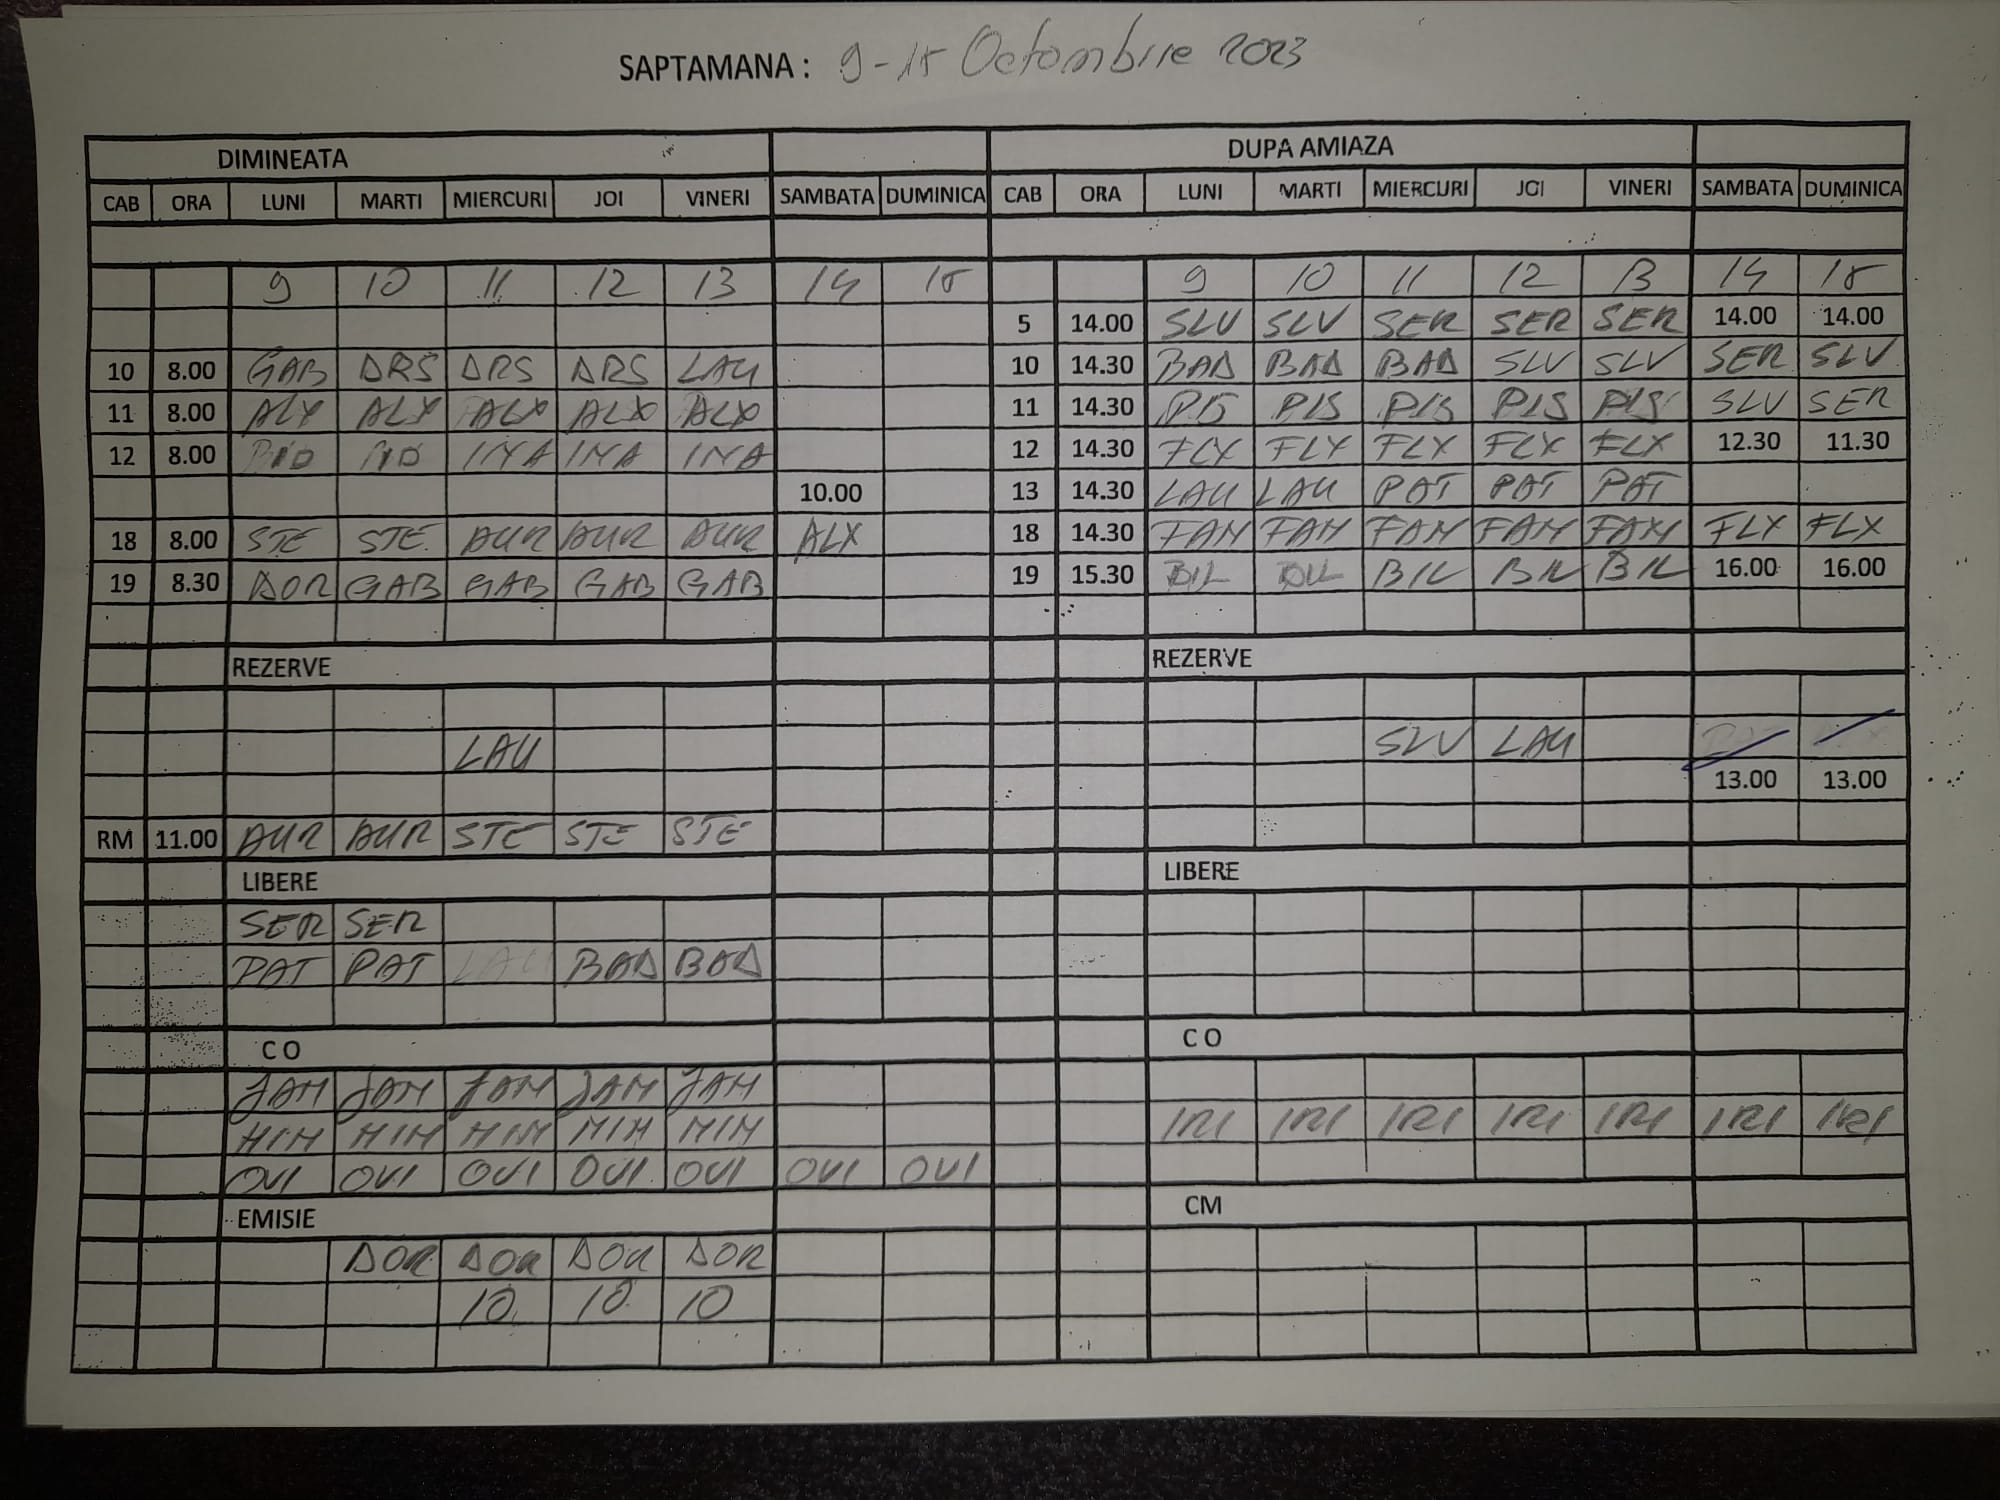 SAPTAMANA : 9-15 Octombrie 2023
DIMINEATA DUPA AMIAZA
CAB ORA LUNI MARTI MIERCURI JOI VINERI SAMBATA DUMINICA CAB ORA LUNI MARTI MIERCURI JOI VINERI SAMBATA DUMINICA
9 10 11 12 13 14 15 9 10 11 12 13 14 15
5 14.00 SLV SLV SER SER SER 14.00 14.00
10 8.00 GAB DRS DRS DRS LAU 10 14.30 BAD BAD BAD SLV SLV SER SLV
11 8.00 ALX ALX ALX ALX ALX 11 14.30 PIS PIS PIS PIS PIS SLV SER
12 8.00 INA INA INA 12 14.30 FLX FLX FLX FLX FLX 12.30 11.30
10.00 13 14.30 LAU LAU PAT PAT PAT
18 8.00 STE STE AUR AUR AUR ALX 18 14.30 FAM FAM FAM FAM FAM FLX FLX
19 8.30 DOR GAB GAB GAB GAB 19 15.30 BIL BIL BIL BIL BIL 16.00 16.00
REZERVE REZERVE
LAU SLV LAU
13.00 13.00
RM 11.00 AUR AUR STE STE STE
LIBERE LIBERE
SER SER
PAT PAT LAU BAD BAD
C O C O
JAM JAM JAM JAM JAM
MIM MIM MIM MIM MIM IRI IRI IRI IRI IRI IRI IRI
OVI OVI OVI OVI OVI OVI OVI
EMISIE CM
DOR DOR DOR DOR
10 10 10